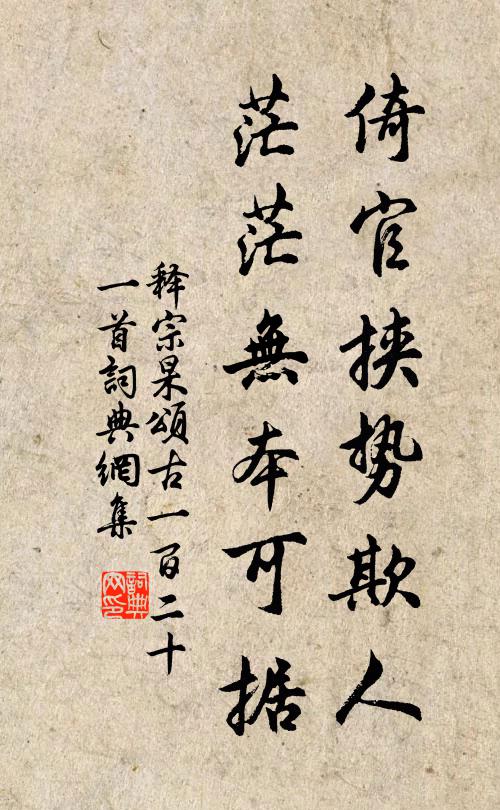 倚官挟势欺人
茫茫無本可据
释宗杲頌古一百二十
一首詞典網集
詞典
网印